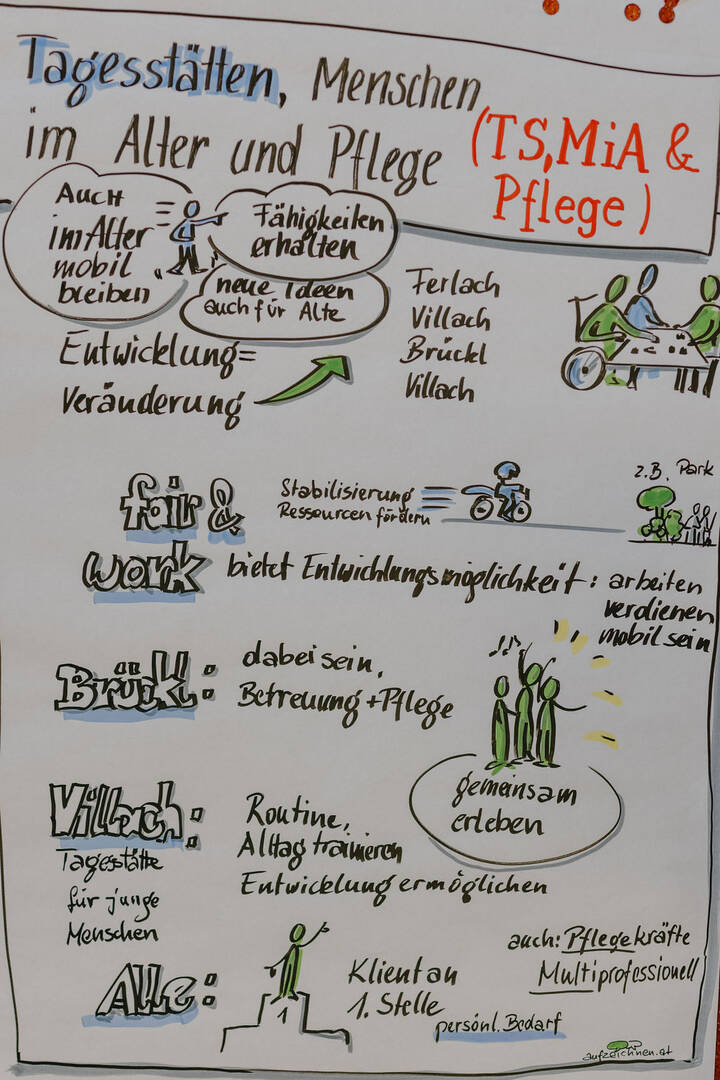 Tagesstätten, Menschen
im Alter und Pflege
(TS, MiA &
Pflege)
Auch
im Alter
mobil
bleiben
Fähigkeiten
erhalten
neue Ideen
auch für Alte
Entwicklung =
Veränderung
Ferlach
Villach
Brückl
Villach
fair &
work
Stabilisierung
Ressourcen fördern
z.B. Park
bietet Entwicklungsmöglichkeit: arbeiten
verdienen
mobil sein
Brückl:
dabei sein,
Betreuung + Pflege
gemeinsam
erleben
Villach:
Tagesstätte
für junge
Menschen
Routine,
Alltag trainieren
Entwicklung ermöglichen
Alle:
1
Klient an
1. Stelle
persönl. Bedarf
auch: Pflegekräfte
Multiprofessionell
aufzeichnen.at